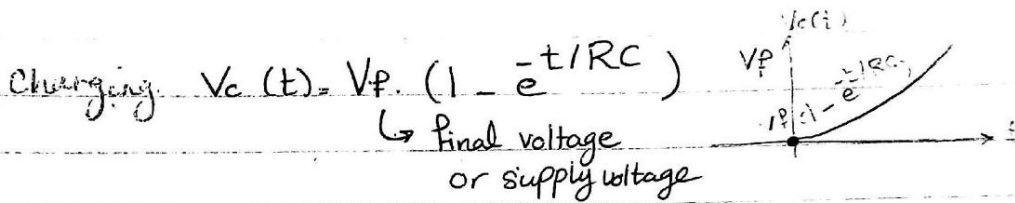 Charging Vc (t) = Vf. (1 - e^-t/RC)
↳ final voltage
or supply voltage
Vc(t)
Vf
Vf(1 - e^-t/RC)
t